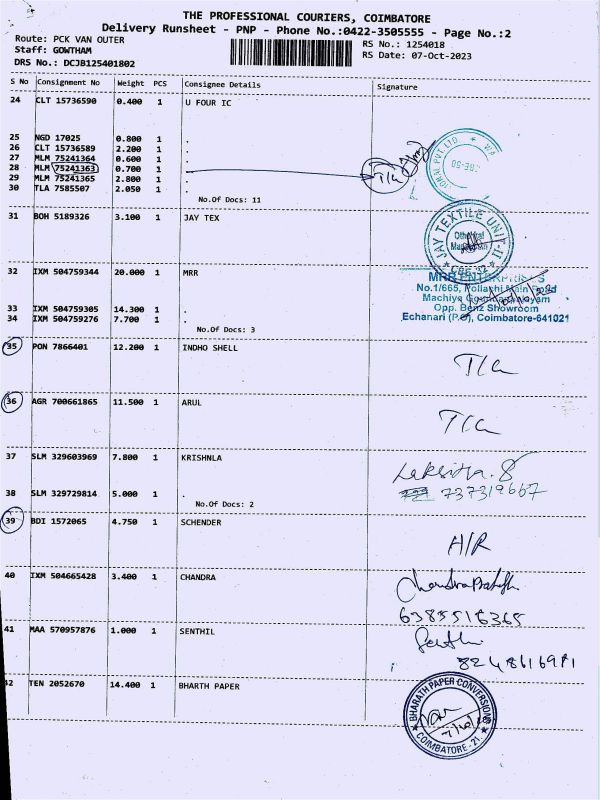 THE PROFESSIONAL COURIERS, COIMBATORE
Delivery Runsheet - PNP - Phone No.:0422-3505555 - Page No.:2
Route: PCK VAN OUTER
Staff: GOWTHAM
DRS No.: DCJB125401802
RS No.: 1254018
RS Date: 07-Oct-2023
S No Consignment No Weight PCS Consignee Details Signature
24 CLT 15736590 0.400 1 U FOUR IC
25 NGD 17025 0.800 1 .
26 CLT 15736589 2.200 1 .
27 MLM 75241364 0.600 1 .
28 MLM 75241363 0.700 1 . T/C
29 MLM 75241365 2.800 1 .
30 TLA 7585507 2.050 1 .
No.Of Docs: 11
31 BOH 5189326 3.100 1 JAY TEX
JAY TEXTILE UNIT-II
32 IXM 504759344 20.000 1 MRR
MRR ENTERPRISES
No.1/665, Pollachi Main Road
Machiya Goundanpalayam
Opp. Benz Showroom
Echanari (P.O), Coimbatore-641021
33 IXM 504759305 14.300 1 .
34 IXM 504759276 7.700 1 .
No.Of Docs: 3
35 PON 7866401 12.200 1 INDHO SHELL
T/C
36 AGR 700661865 11.500 1 ARUL
T/C
37 SLM 329603969 7.800 1 KRISHNLA
38 SLM 329729814 5.000 1 .
737319667
No.Of Docs: 2
39 BDI 1572065 4.750 1 SCHENDER
A/R
40 IXM 504665428 3.400 1 CHANDRA
6385516365
41 MAA 570957876 1.000 1 SENTHIL
8248616981
42 TEN 2052670 14.400 1 BHARTH PAPER
BHARATH PAPER CONVERSIONS
COIMBATORE - 21.